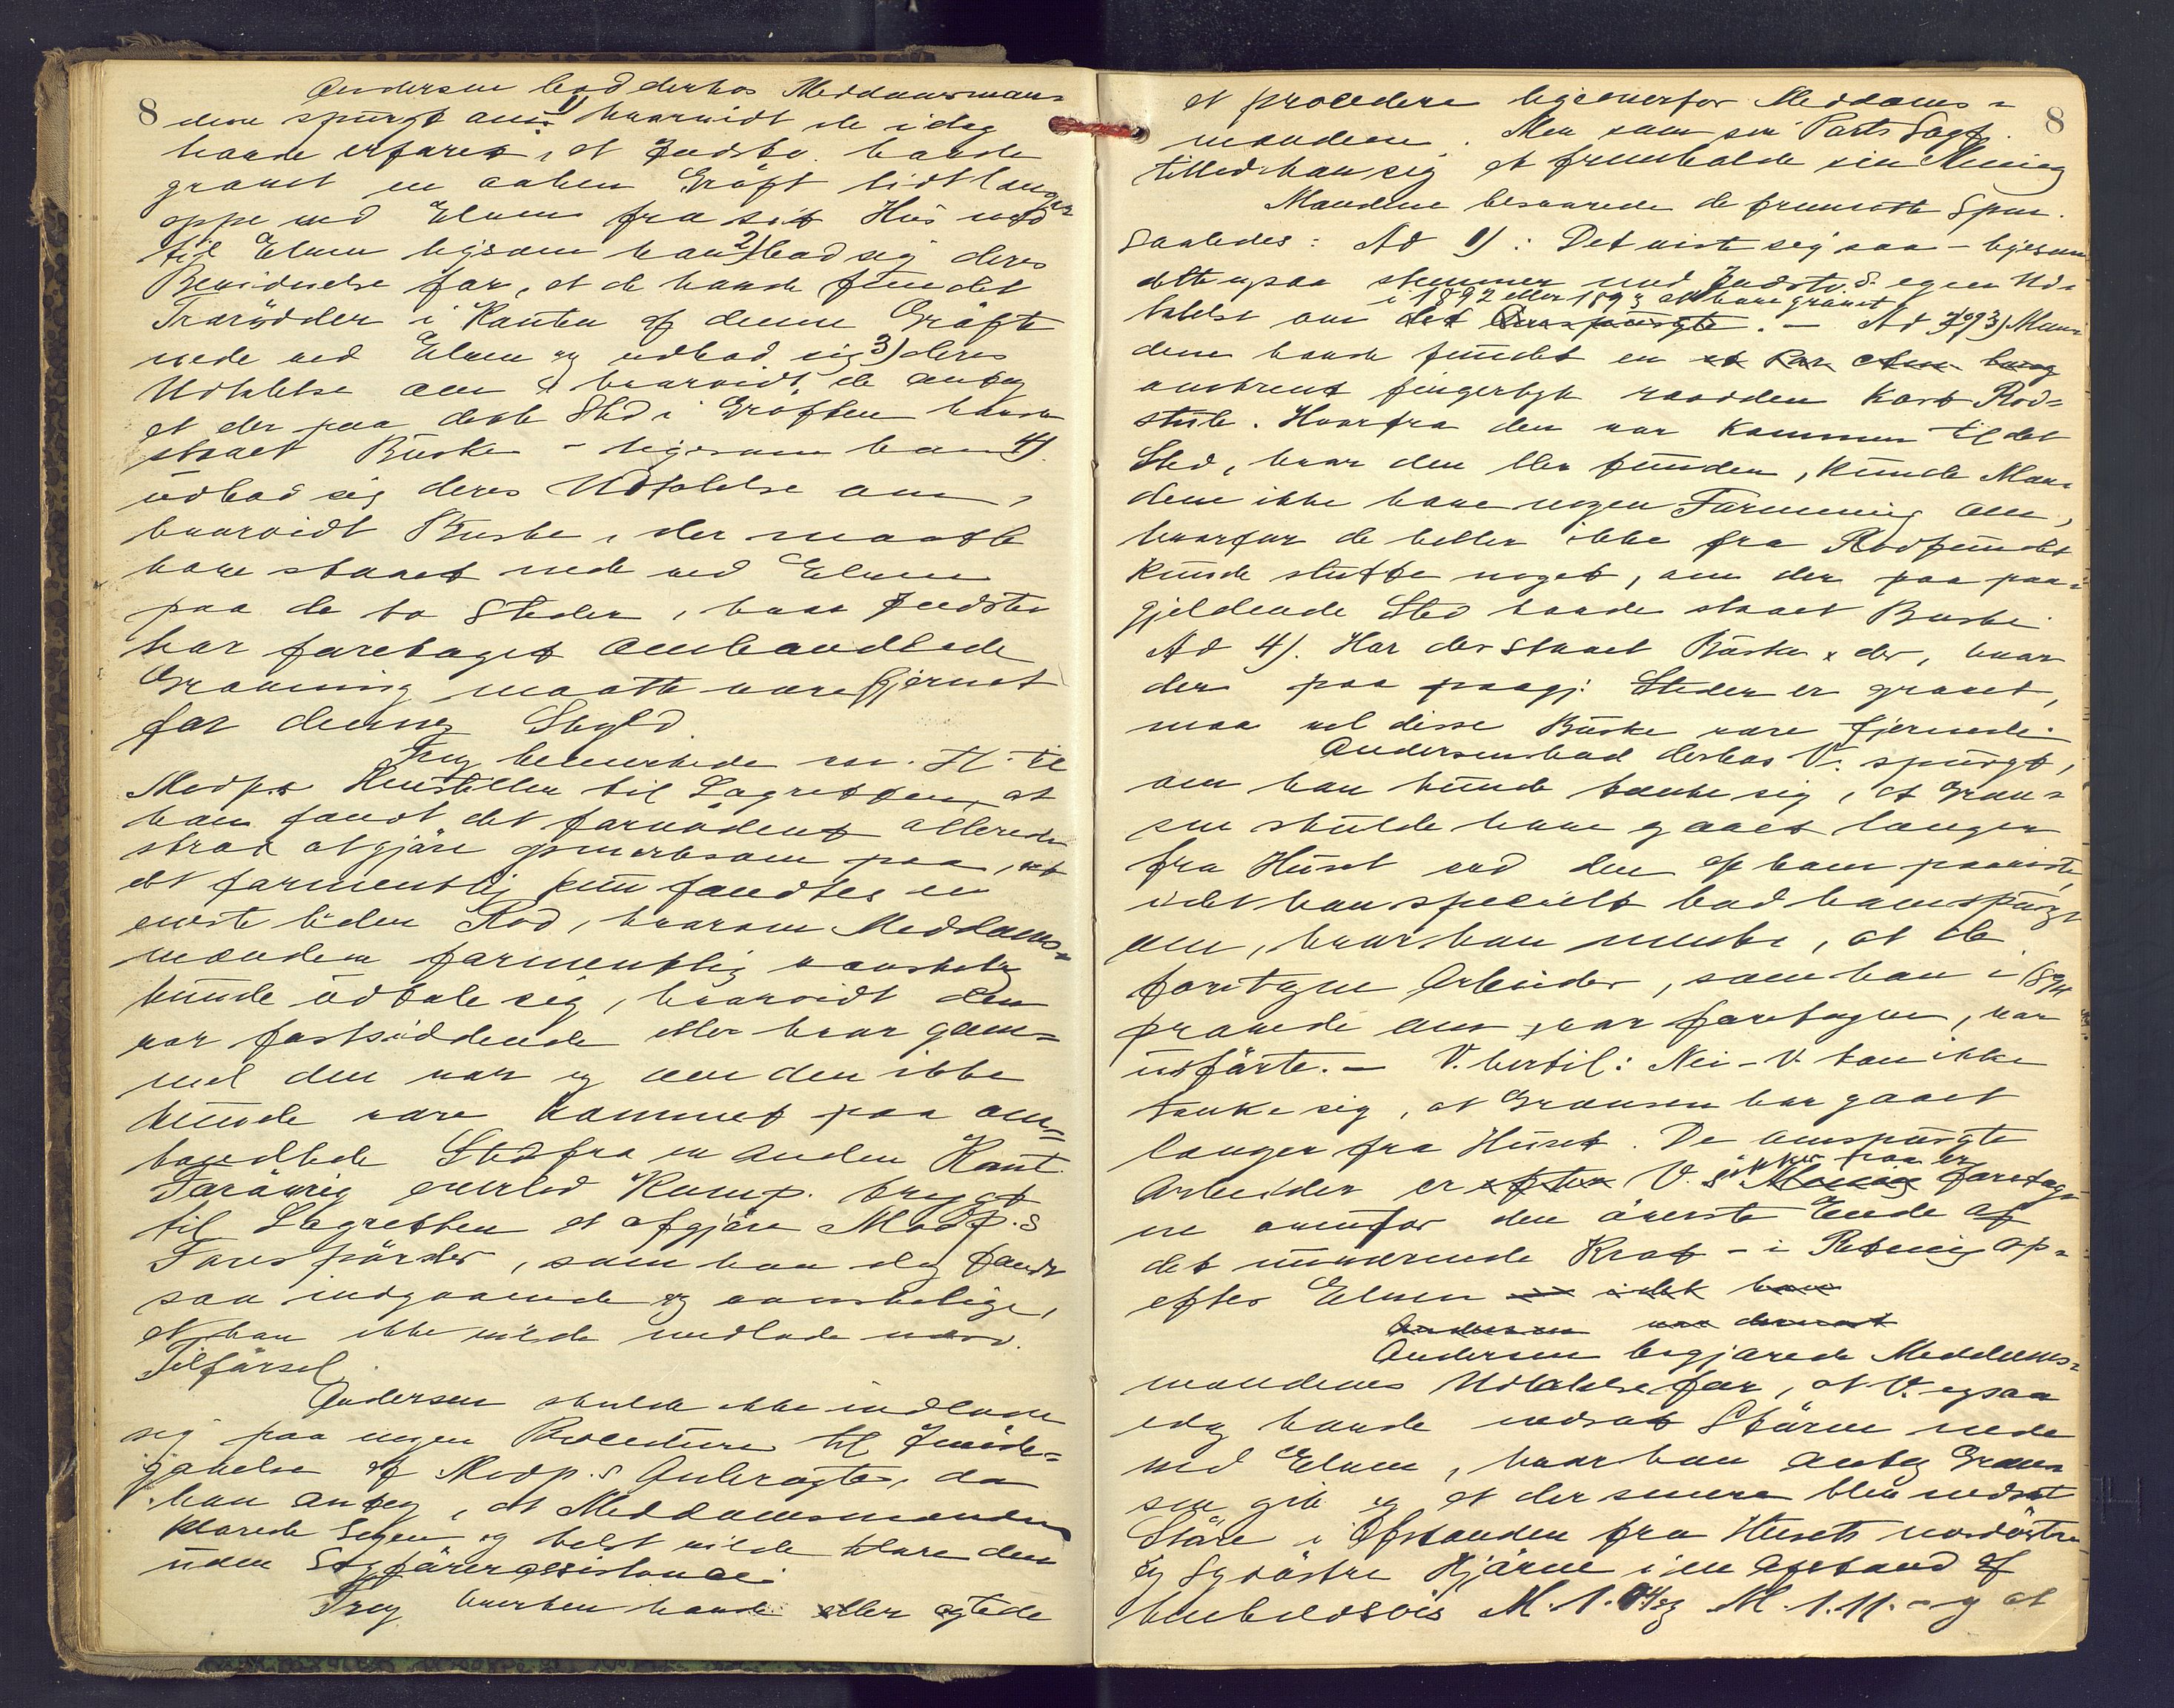 8
Andersen bad derhos Meddomsmæn-
dene spurgt om: 1) hvorvidt de idag
havde erfaret, at Indstv. havde
gravet en aaben Gröft lidt længer
oppe ved Elven fra sit Hus ned
til Elven ligesom han 2) bad sig deres
Bevidnelse for, at de havde fundet
Trærödder i Kanten af denne Gröft
nede ved Elven og udbad sig 3) deres
Udtalelse om hvorvidt de antog
at der paa dette Sted i Gröften havde
staaet Buske - ligesom han 4)
udbad sig deres Udtalelse om,
hvorvidt Buske, der maatte
have staaet nede ved Elven
paa de to Steder, hvor Indstv
har foretaget omhandlede
Gravning maatte være fjernet
for dennes Skyld.
Trey bemærkede m. H. til
Modp.s Henstillen til Lagretten, at
han fandt det fornödent allerede
strax at gjöre opmærksom paa, at
det formentlig kun fandtes en
eneste liden Rod, hvorom Meddoms-
mændene formentlig vanskelig
kunde udtale sig, hvorvidt den
var fastsiddende eller hvor gam-
mel den var og om den ikke
kunde være kommet paa om-
handlede Sted fra en anden Kant.
Forövrig overlod Komp. trygt
til Lagretten at afgjöre Modp.s
Forespörsler, som han dog fandt
saa indgaaende og vanskelige,
at han ikke vilde undlade nærv.
Tilförsel.
Andersen skulde ikke indlade
sig paa nogen Procedure til Imöde-
gaaelse af Modp.s Anbragte, da
han antog, at Meddomsmændene
klarede Sagen og helst vilde klare den
uden Sagförerassistance.
Trey hverken havde eller agtede
8
at procedere ligeoverfor Meddoms-
mændene. Men som sin Parts Sagf.
tillod han sig at fremholde sin Mening
Mændene besvarede de fremsatte Spm.
saaledes: Ad 1): Det viste sig saa - ligesom
dette ogsaa stemmer med Indstv.s egen Ud-
i 1892 eller 1893 at have gravet
talelse om det Omspurgte. - Ad 2 og 3) Mæn-
dene havde fundet en
omtrent fingertyk raadden kort Rod-
stub. Hvorfra den var kommen til det
Sted, hvor den blev funden, kunde Mæn-
dene ikke have nogen Formening om,
hvorfor de heller ikke fra Rodfundet
kunde slutte noget, om der paa paa-
gjeldende Sted havde staaet Buske.
Ad 4). Har der staaet Buske der, hvor
der paa paagj. Steder er gravet,
maa vel disse Buske være fjernede.
Andersen bad derhos V. spurgt,
om han kunde tænke sig, at Græn-
sen skulde have gaaet længer
fra Huset end den af ham paaviste,
idet han specielt bad ham spurgt
om, hvor han mente, at de
foretagne Arbeider, som han i 1894
prövede om var foretagne, var
udförte. - V. hertil: Nei - V. kan ikke
tænke sig, at Grænsen har gaaet
længer fra Huset. De omspurgte
Arbeider er V. sikker paa er foretag-
ne ovenfor den överste Ende af
det nuværende Krat - i Retning op-
efter Elven
Andersen
Andersen begjærede Meddoms-
mændenes Udtalelse for, at V. ogsaa
idag havde nedsat Stören nede
ved Elven, hvor han antog Græn-
sen gik og at der senere blev nedsat
Störe i Afstanden fra Husets nordöstre
og sydöstre Hjörne i en Afstand af
henholdsvis M. 1.04 og M. 1.11. - og at